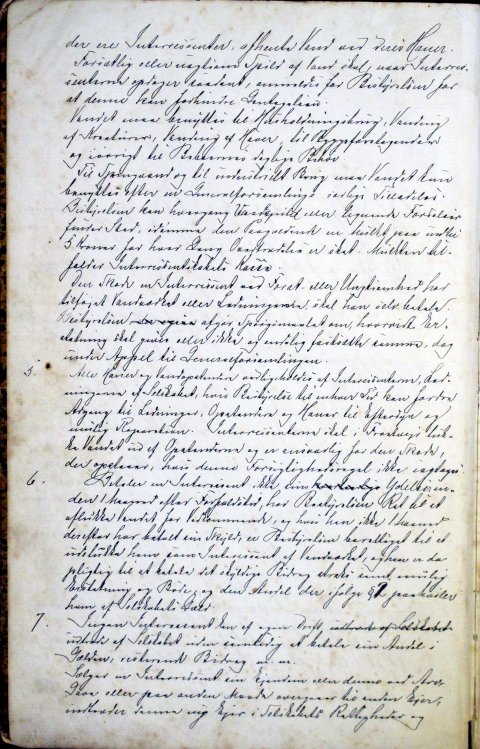 der ere Interessenter, afhente Vand ved deres Haner.
Forsætlig eller uagtsom Spild af Vand skal, naar Interes-
senterne opdager saadant, anmeldes for Bestyrelsen for
at denne kan forhindre Gentagelsen.
Vandet maa benyttes til Husholdningsbrug, Vanding
af Kreaturer, Vanding af Haver, til Byggeforetagender
og iøvrigt til Beboernes daglige Behov
Til Springvand og til industrielt Brug maa Vandet kun
benyttes efter en Generalforsamlings særlige Tilladelse.
Bestyrelsen kan hver Gang Vandspild eller lignende
finder Sted, idømme den Paagældende en Mulkt paa indtil
5 Kroner for hver Gang Overtrædelse er sket. Mulkten til-
falder Interessentskabets Kasse.
Den Skade en Interessent ved Forsæt eller Uagtsomhed har
tilføjet Vandværket eller Ledningerne, skal han selv betale.
Bestyrelsen afgør Spørgsmaalet om, hvorvidt Er-
statning skal gives eller ikke og endelig fastsætte samme, dog
under Appel til Generalforsamlingen.
5. Alle Haner og Vandposter vedligeholdes af Interessenterne, Led-
ningerne af Selskabet, hvis Bestyrelse til enhver Tid kan fordre
Adgang til Ledninger, og Haner til Eftersyn og
mulig Reparation. Interessenterne skal i Frostvejr luk-
ke Vandet ud af og er ansvarlig for den Skade,
der opstaar, hvis denne Forsigtighedsregel ikke iagttages
6. Betaler en Interessent ikke sin Ydelse in-
den 1 Maaned efter Forfaldstid, har Bestyrelsen Ret til at
aflukke Vandet for Vedkommende, og hvis han ikke 1 Maaned
derefter har betalt sin Skyld, er Bestyrelsen berettiget til at
udelukke ham som Interessent af Vandværket, og han er da
pligtig til at betale det skyldige Bidrag straks samt mulig
Erstatning og Bøde, og den Andel der ifølge § paahviler
ham af Selskabets Gæld.
7. Ingen Interessent kan af egen Drift udtræde af Selskabet
uden samtidig at betale sin Andel i
Gælden, resterende Bidrag m. m.
Sælger en Interessent sin Ejendom eller denne ved Arv,
Gave eller paa anden Maade overgaar til anden Ejer,
indtræder denne nye Ejer i Selskabets Rettigheder og